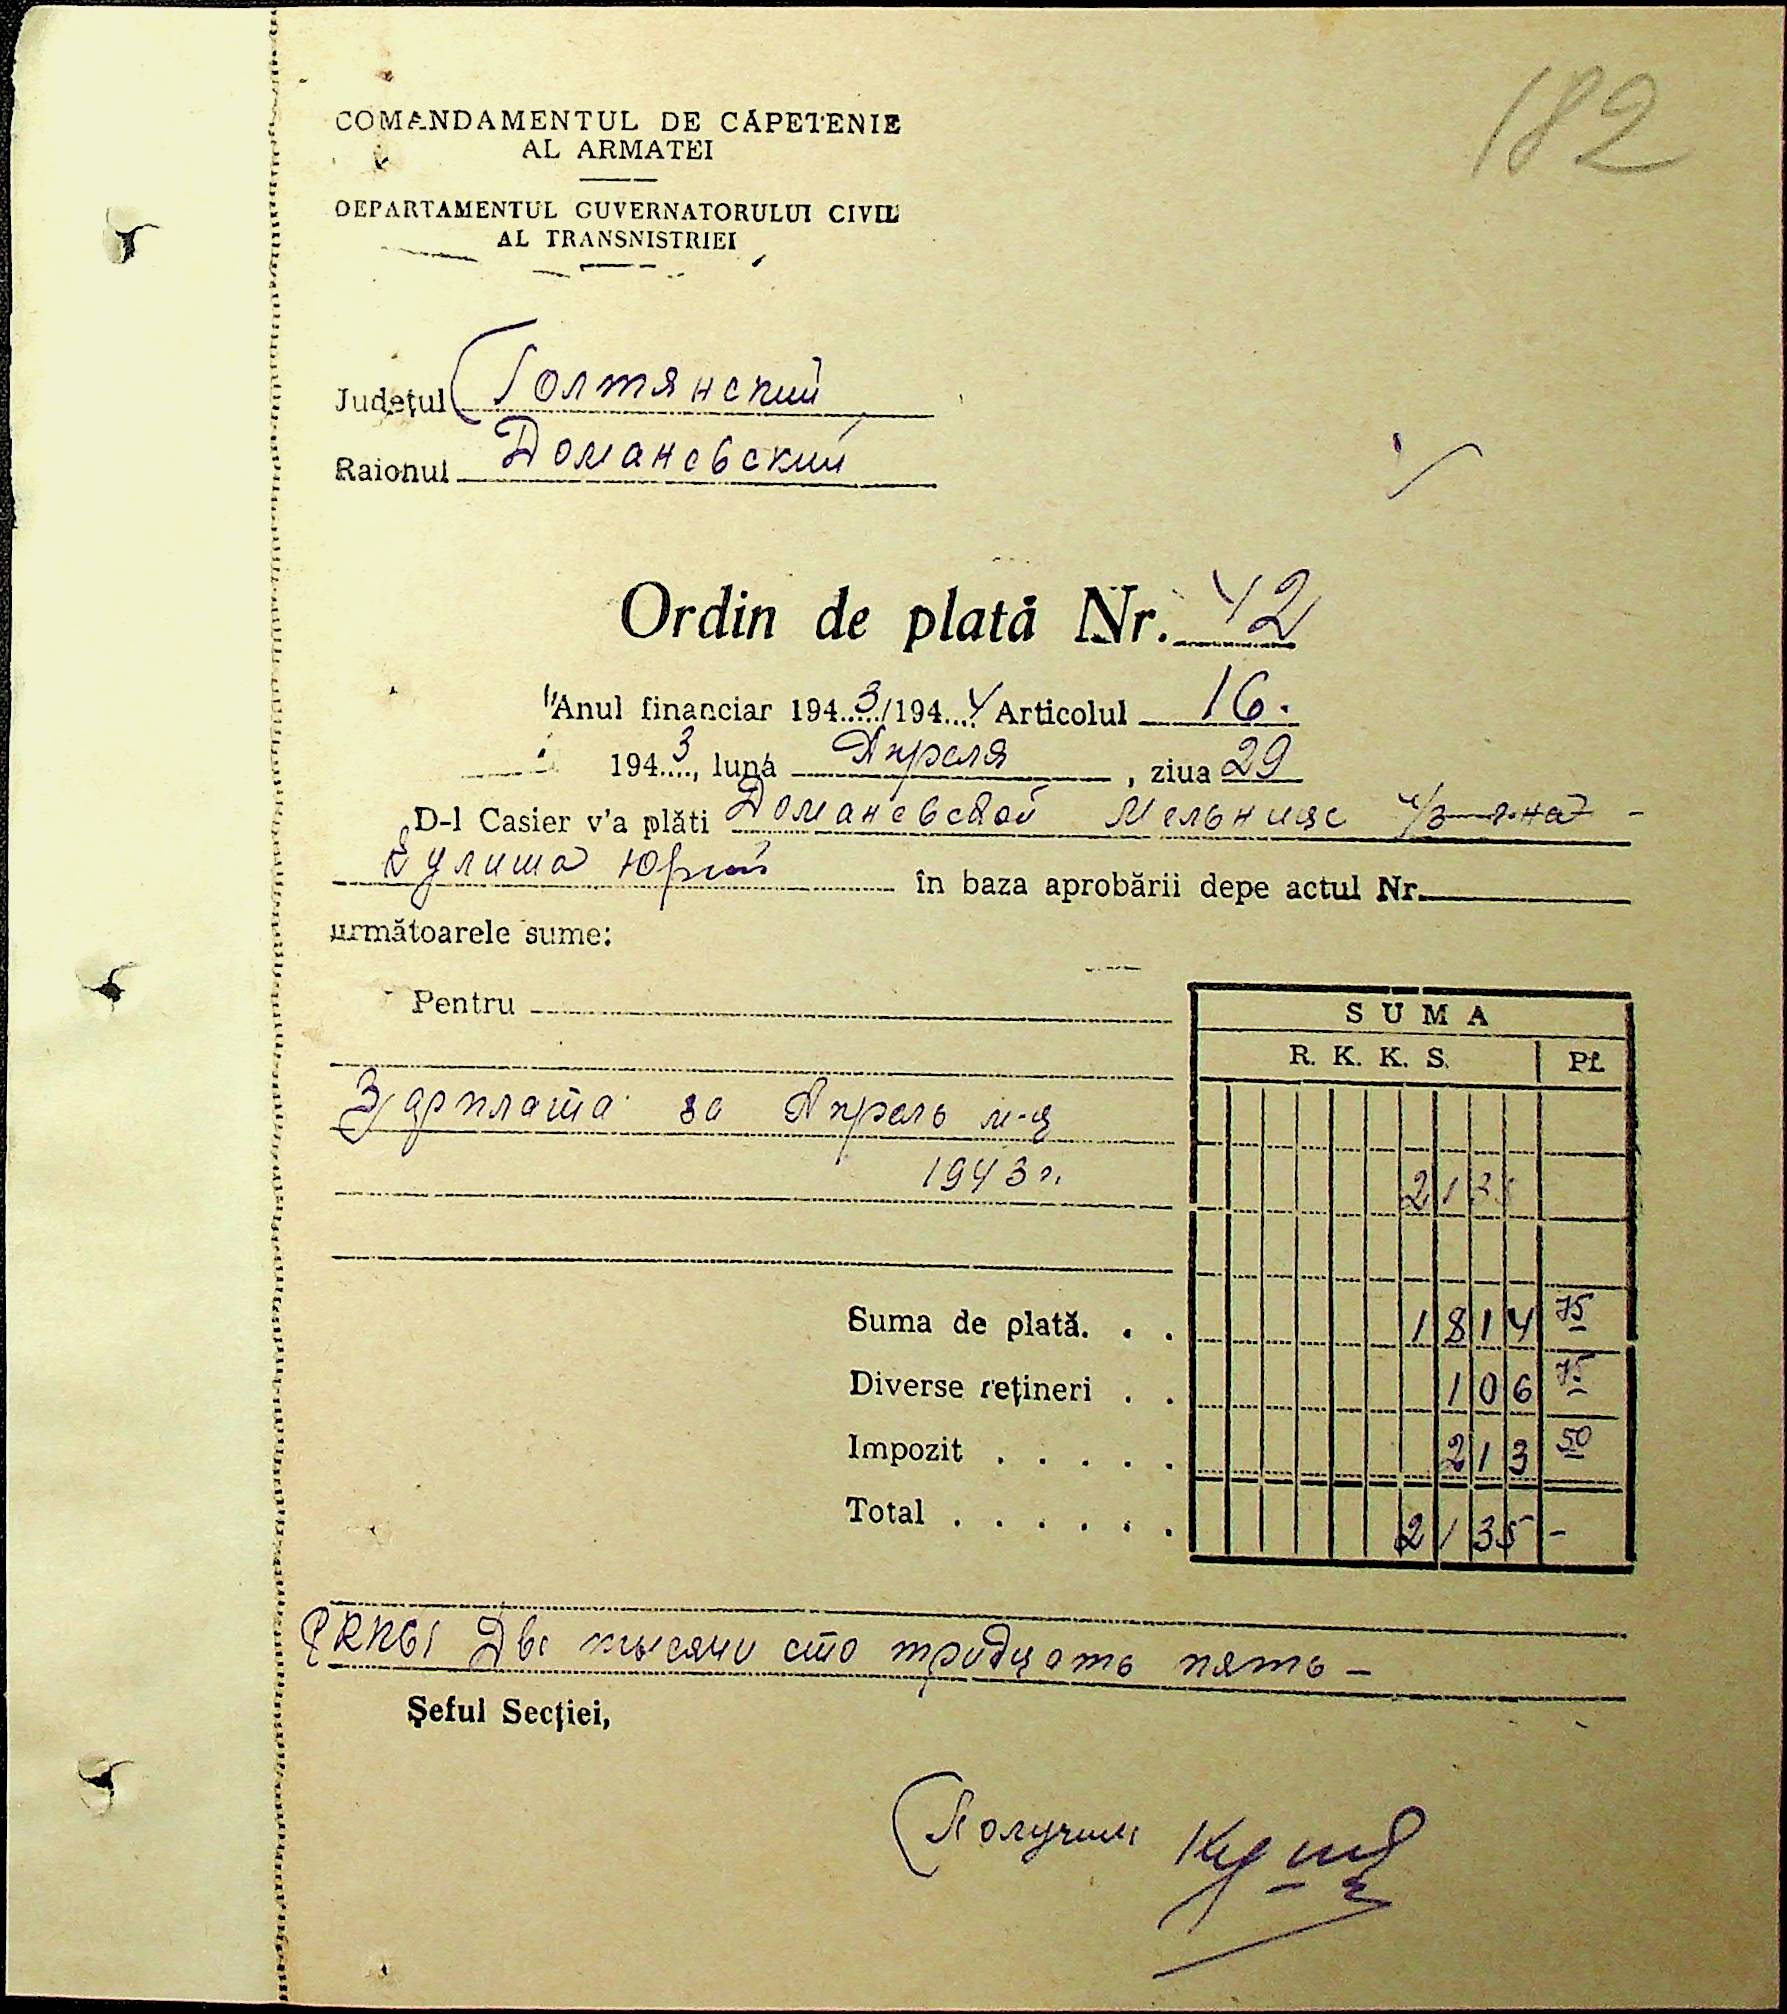 182
COMANDAMENTUL DE CĂPETENIE
AL ARMATEI
DEPARTAMENTUL GUVERNATORULUI CIVIL
AL TRANSNISTRIEI
Județul Голтянский
Raionul Доманевский
Ordin de plată Nr. 42
Anul financiar 1943/1944 Articolul 16.
1943, luna Апреля, ziua 29
D-l Casier v'a plăti Доманевской Мельнице ч/з
Кулиша Юрий în baza aprobării depe actul Nr.
următoarele sume:
Pentru
SUMA
R. K. K. S. Pf.
Зарплата за Апрель м-ц
1943 г. 2135
Suma de plată. . . 1814 75
Diverse rețineri . . 106 75
Impozit . . . . . 213 50
Total . . . . . . 2135 -
Две тысячи сто тридцать пять -
Șeful Secției,
Получил